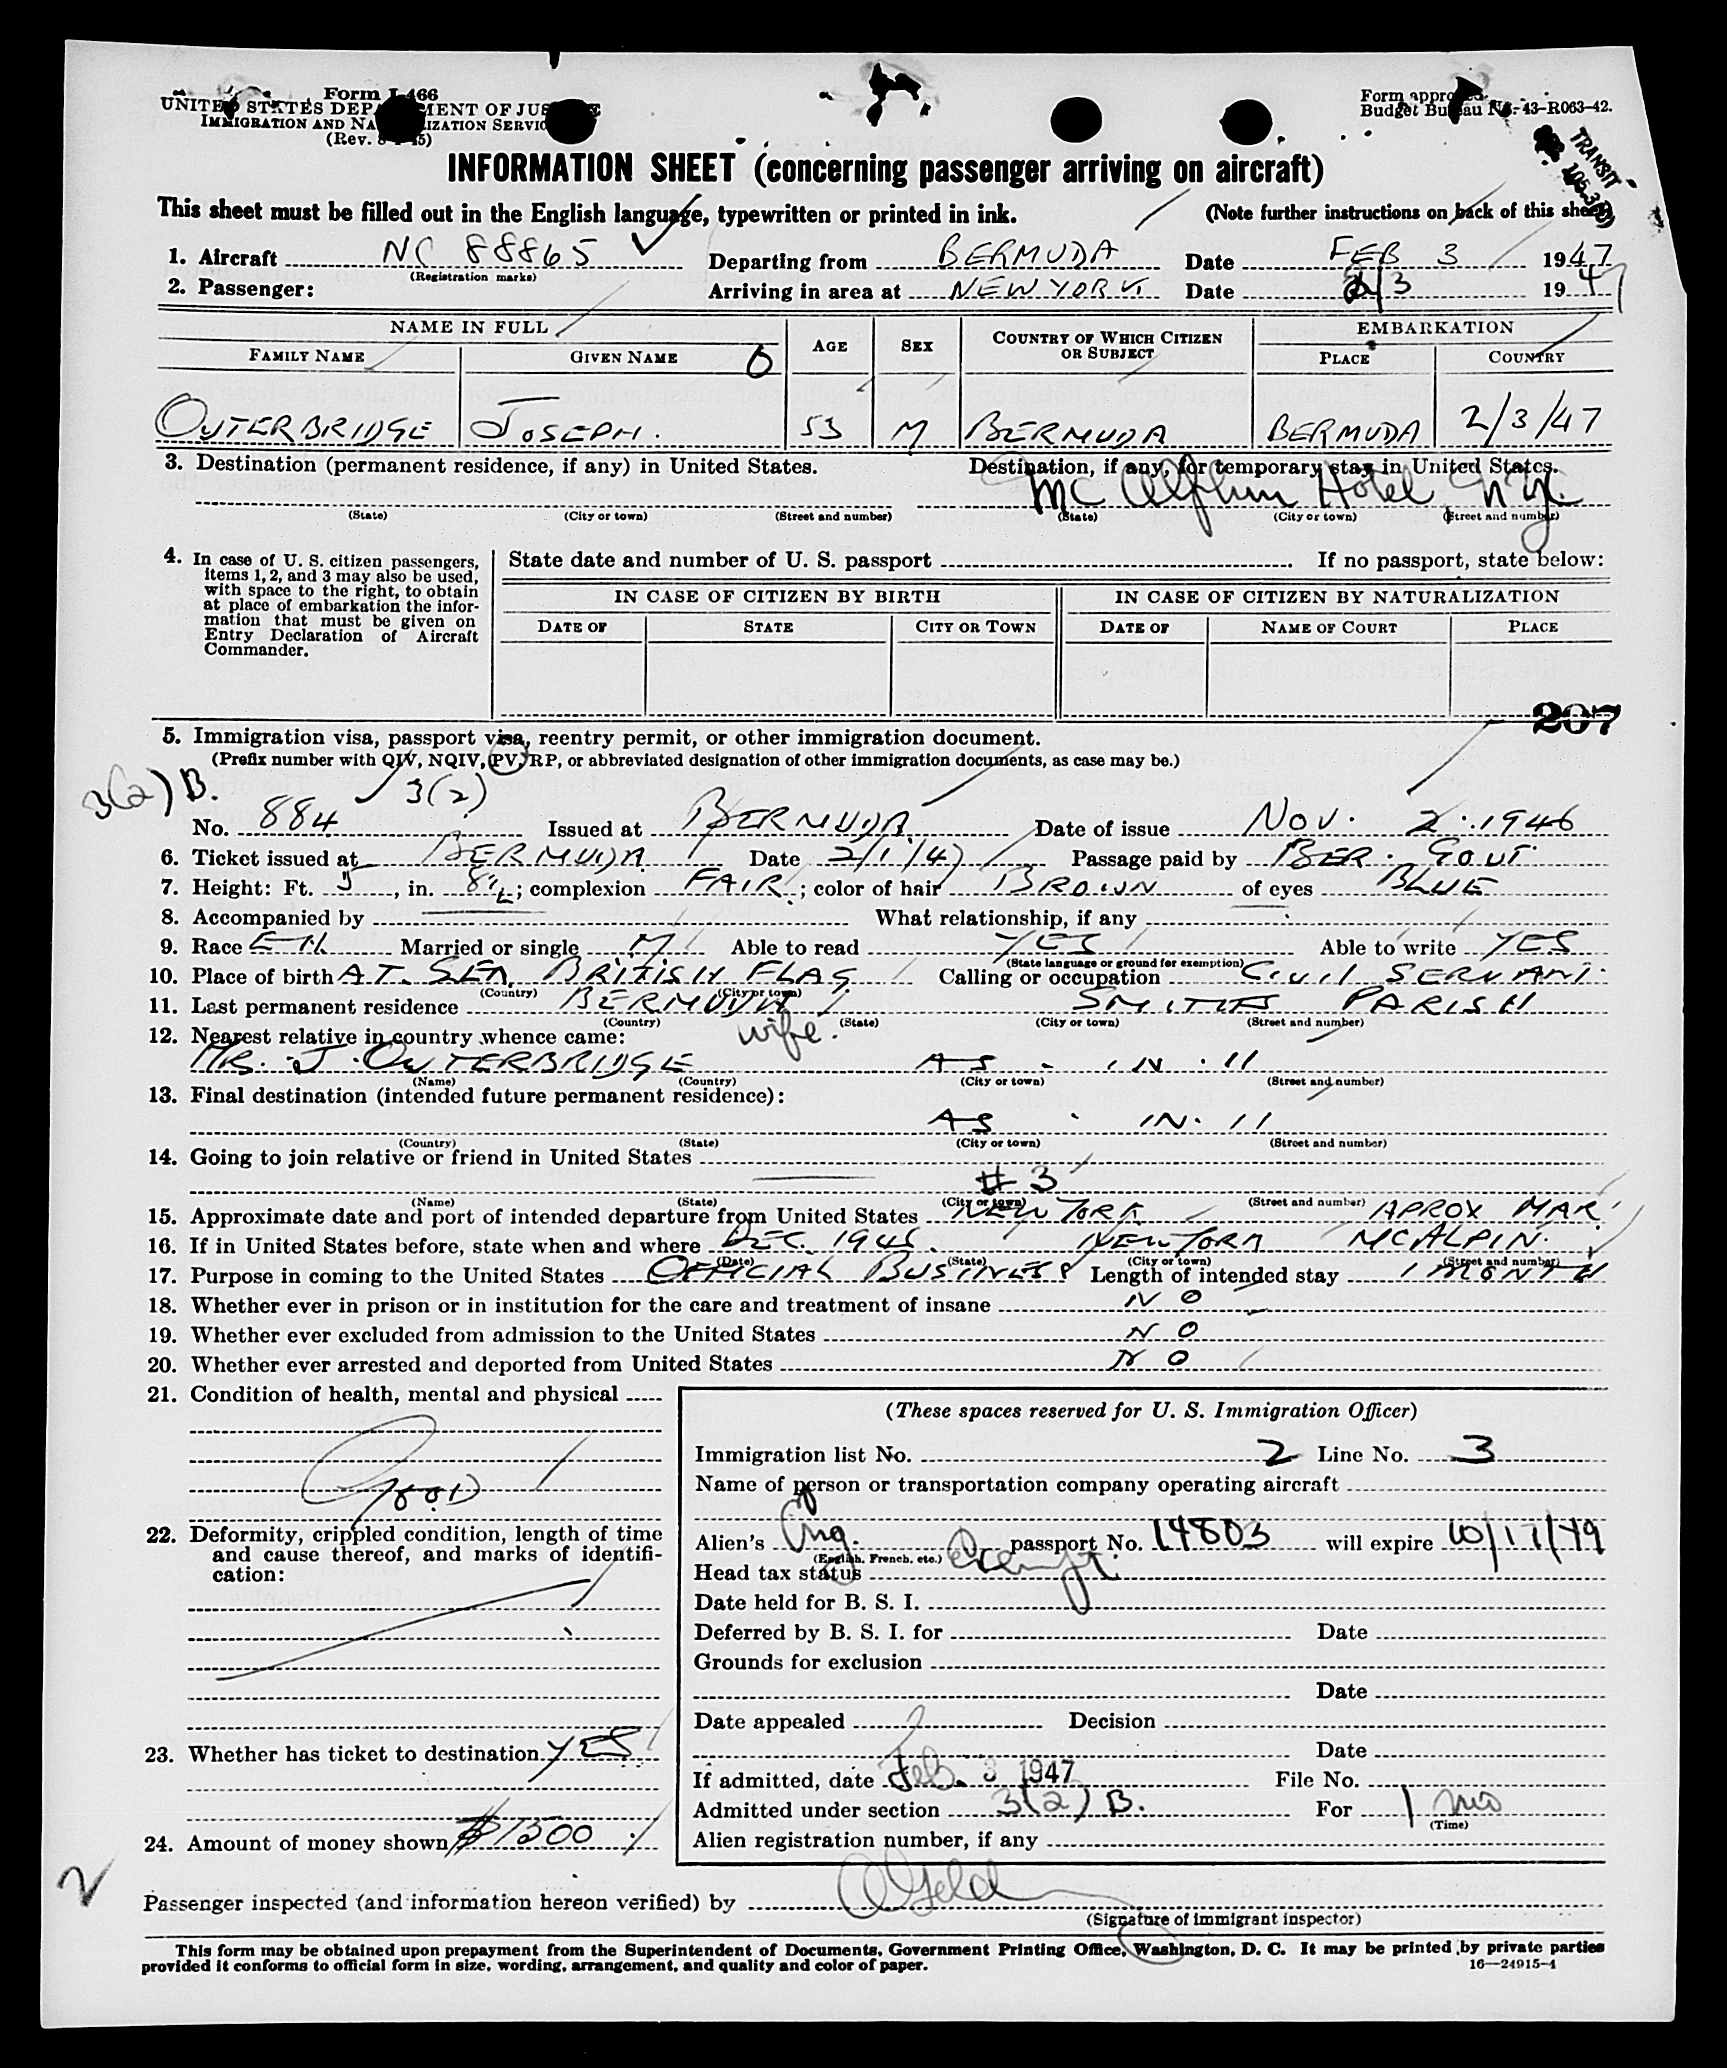 Form I-466
UNITED STATES DEPARTMENT OF JUSTICE
IMMIGRATION AND NATURALIZATION SERVICE
(Rev. 45)
Form approved.
Budget Bureau No. 43-R063-42.
TRANSIT
INFORMATION SHEET (concerning passenger arriving on aircraft)
This sheet must be filled out in the English language, typewritten or printed in ink. (Note further instructions on back of this sheet)
1. Aircraft NC 88865 Departing from BERMUDA Date FEB 3 1947
(Registration marks)
2. Passenger: Arriving in area at NEW YORK Date 2/3 1947
NAME IN FULL AGE SEX COUNTRY OF WHICH CITIZEN OR SUBJECT EMBARKATION
FAMILY NAME GIVEN NAME PLACE COUNTRY
OUTERBRIDGE JOSEPH. 53 M BERMUDA BERMUDA 2/3/47
3. Destination (permanent residence, if any) in United States. Destination, if any, for temporary stay in United States.
Mc Alphin Hotel, N.Y.C.
(State) (City or town) (Street and number) (State) (City or town) (Street and number)
4. In case of U. S. citizen passengers, items 1, 2, and 3 may also be used, with space to the right, to obtain at place of embarkation the information that must be given on Entry Declaration of Aircraft Commander.
State date and number of U. S. passport If no passport, state below:
IN CASE OF CITIZEN BY BIRTH IN CASE OF CITIZEN BY NATURALIZATION
DATE OF STATE CITY OR TOWN DATE OF NAME OF COURT PLACE
207
5. Immigration visa, passport visa, reentry permit, or other immigration document.
(Prefix number with QIV, NQIV, PV, RP, or abbreviated designation of other immigration documents, as case may be.)
3(2) B. 3(2)
No. 884 Issued at BERMUDA Date of issue NOV. 2. 1946
6. Ticket issued at BERMUDA Date 2/1/47 Passage paid by BER. GOVT.
7. Height: Ft. 5, in. 8½; complexion FAIR; color of hair BROWN of eyes BLUE
8. Accompanied by What relationship, if any
9. Race EN Married or single M Able to read YES Able to write YES
(State language or ground for exemption)
10. Place of birth AT SEA, BRITISH FLAG Calling or occupation CIVIL SERVANT.
(Country) (City or town)
11. Last permanent residence BERMUDA SMITHS PARISH
(Country) (State) (City or town) (Street and number)
12. Nearest relative in country whence came: wife.
MRS. J. OUTERBRIDGE AS - IN. 11
(Name) (Country) (City or town) (Street and number)
13. Final destination (intended future permanent residence):
AS - IN. 11
(Country) (State) (City or town) (Street and number)
14. Going to join relative or friend in United States
# 3
(Name) (State) (City or town) (Street and number)
15. Approximate date and port of intended departure from United States NEW YORK APROX MAR.
16. If in United States before, state when and where DEC. 1946. NEW YORK MCALPIN.
(Date) (State) (City or town) (Street and number)
17. Purpose in coming to the United States OFFICIAL BUSINESS Length of intended stay 1 MONTH
18. Whether ever in prison or in institution for the care and treatment of insane NO
19. Whether ever excluded from admission to the United States NO
20. Whether ever arrested and deported from United States NO
21. Condition of health, mental and physical
GOOD
22. Deformity, crippled condition, length of time and cause thereof, and marks of identification:
23. Whether has ticket to destination YES
24. Amount of money shown $1500
(These spaces reserved for U. S. Immigration Officer)
Immigration list No. 2 Line No. 3
Name of person or transportation company operating aircraft
Alien's Eng. passport No. 14803 will expire 10/17/49
(English, French, etc.)
Head tax status Exempt.
Date held for B. S. I.
Deferred by B. S. I. for Date
Grounds for exclusion
Date
Date appealed Decision
Date
If admitted, date Feb. 3 1947 File No.
Admitted under section 3(2) B. For 1 mo
(Time)
Alien registration number, if any
Passenger inspected (and information hereon verified) by
(Signature of immigrant inspector)
This form may be obtained upon prepayment from the Superintendent of Documents, Government Printing Office, Washington, D. C. It may be printed by private parties
provided it conforms to official form in size, wording, arrangement, and quality and color of paper.
16—24915-1